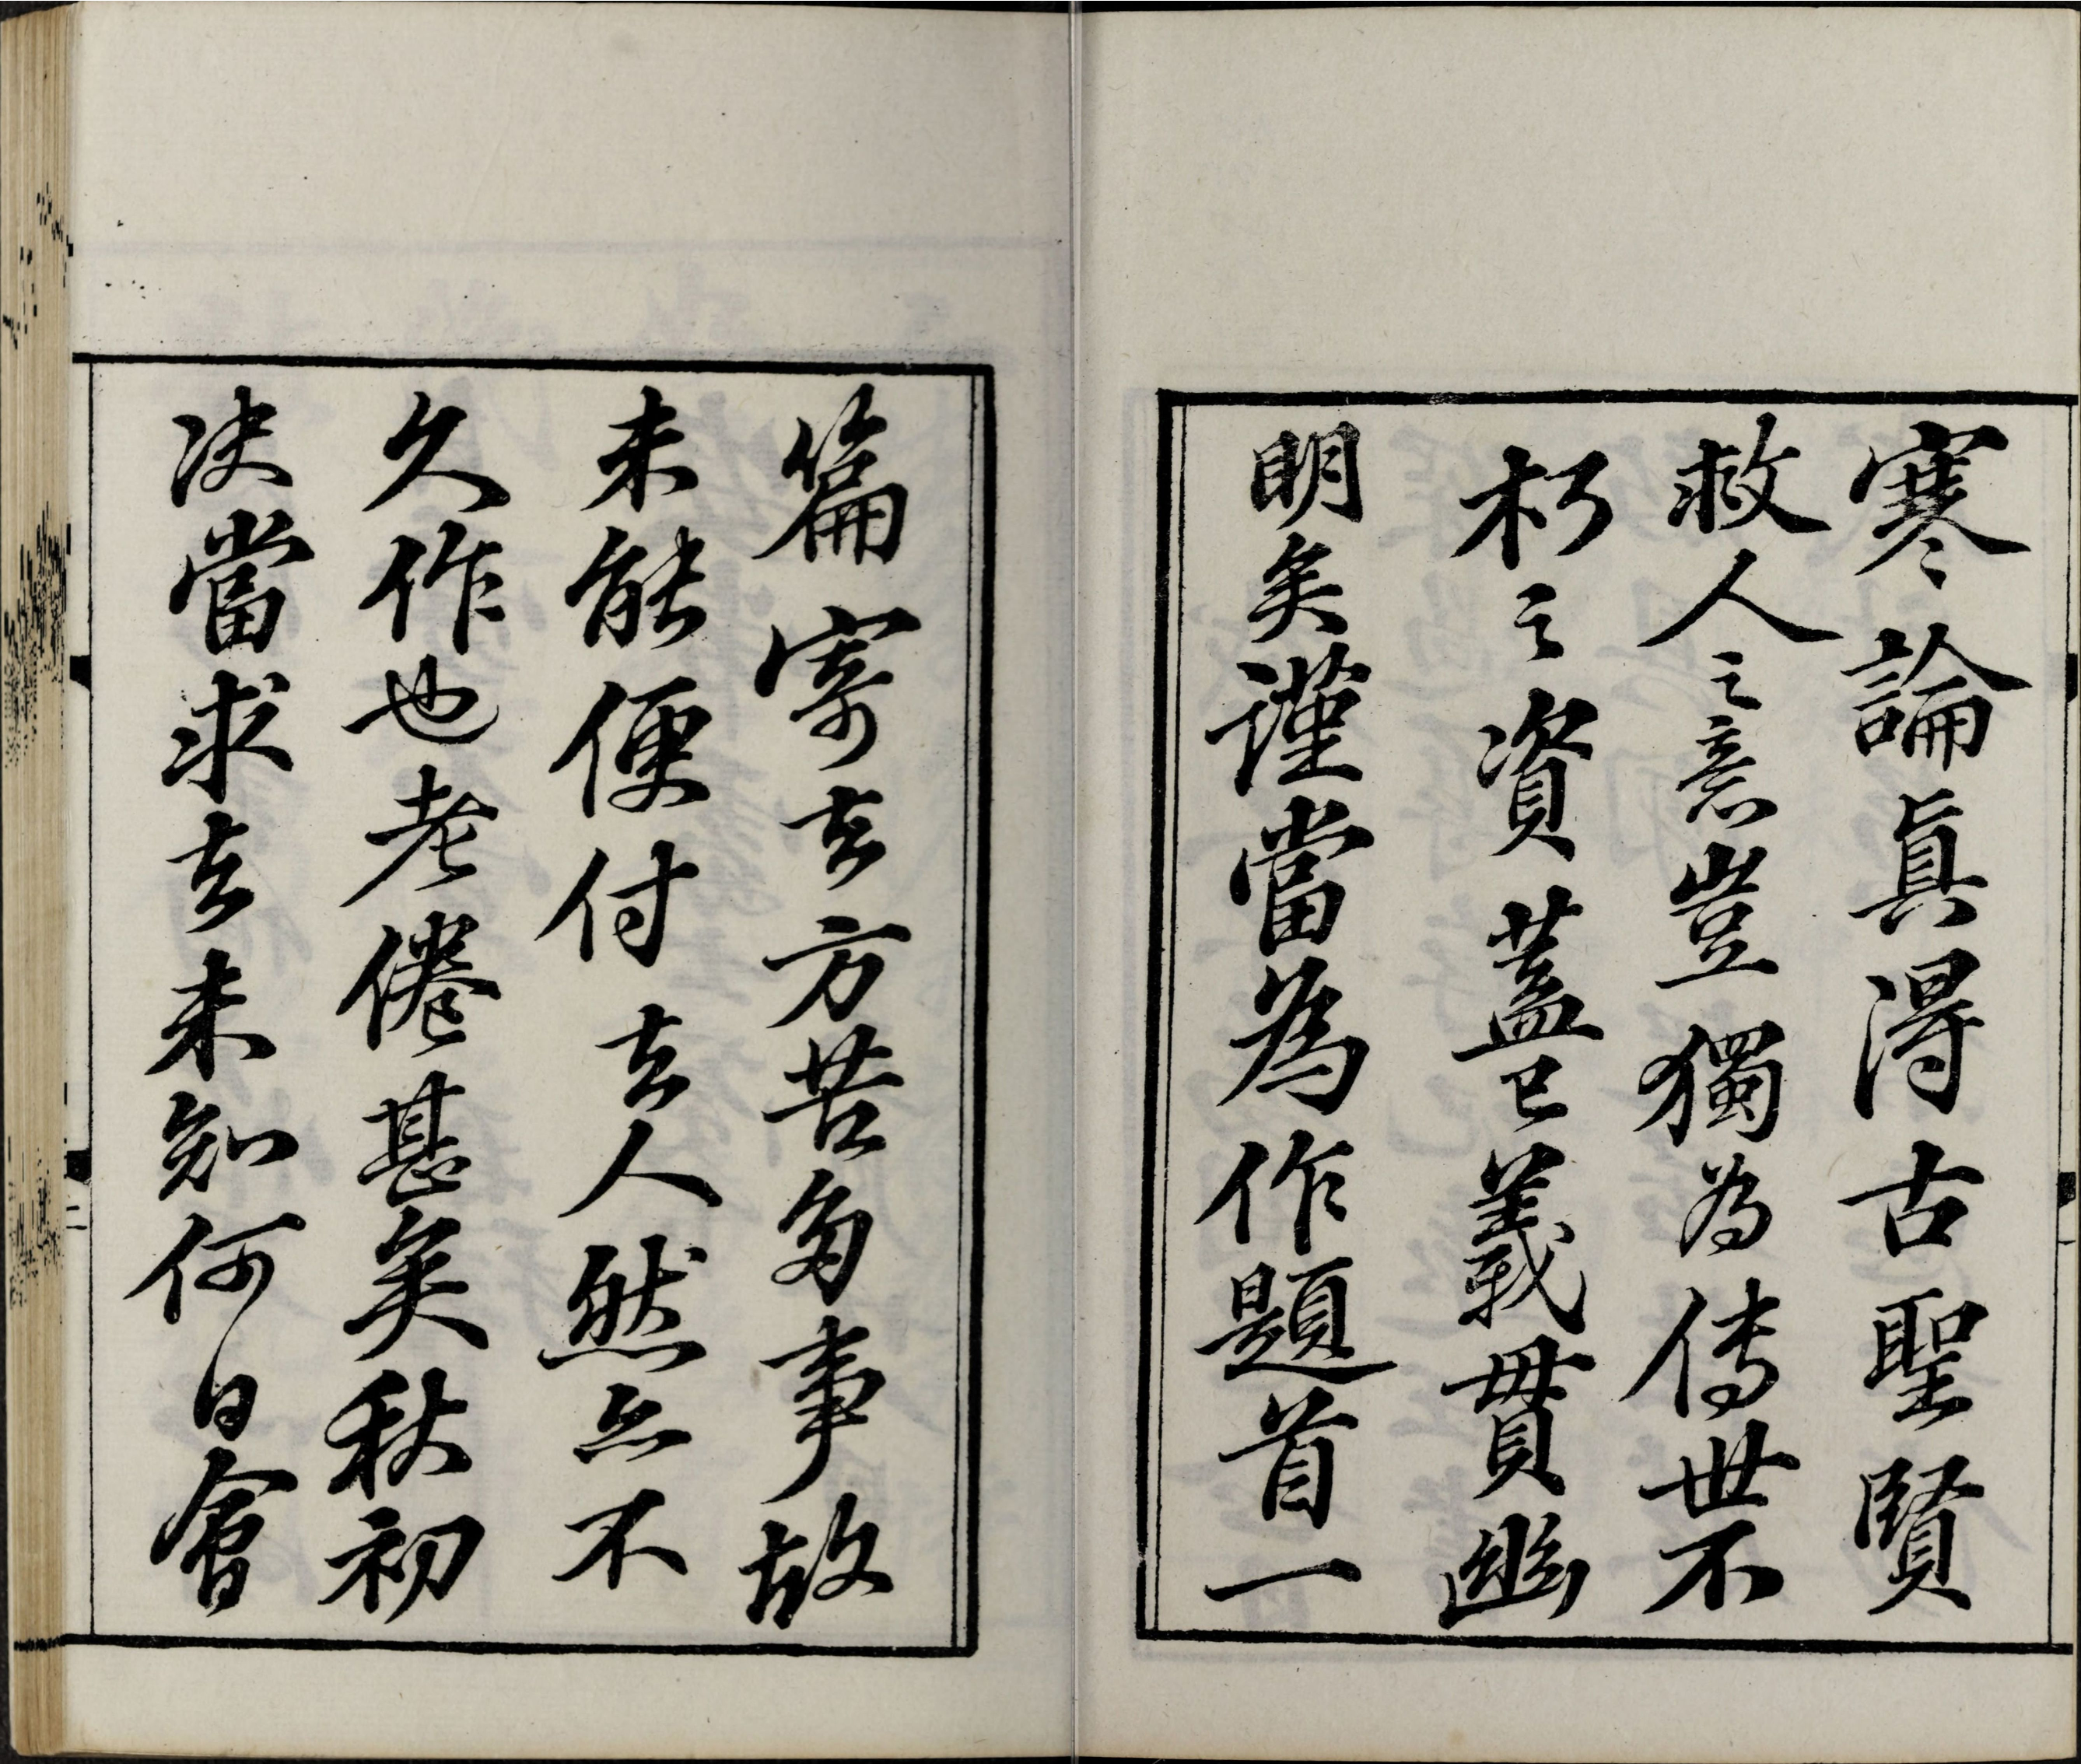 寒論真得古聖賢
救人之意豈獨為傳世不
朽之資蓋已義貫幽
明矣謹當為作題首一
篇寄去方苦多事故
未能便付去人然亦不
久作也老倦甚矣秋初
决當求去未知何日會